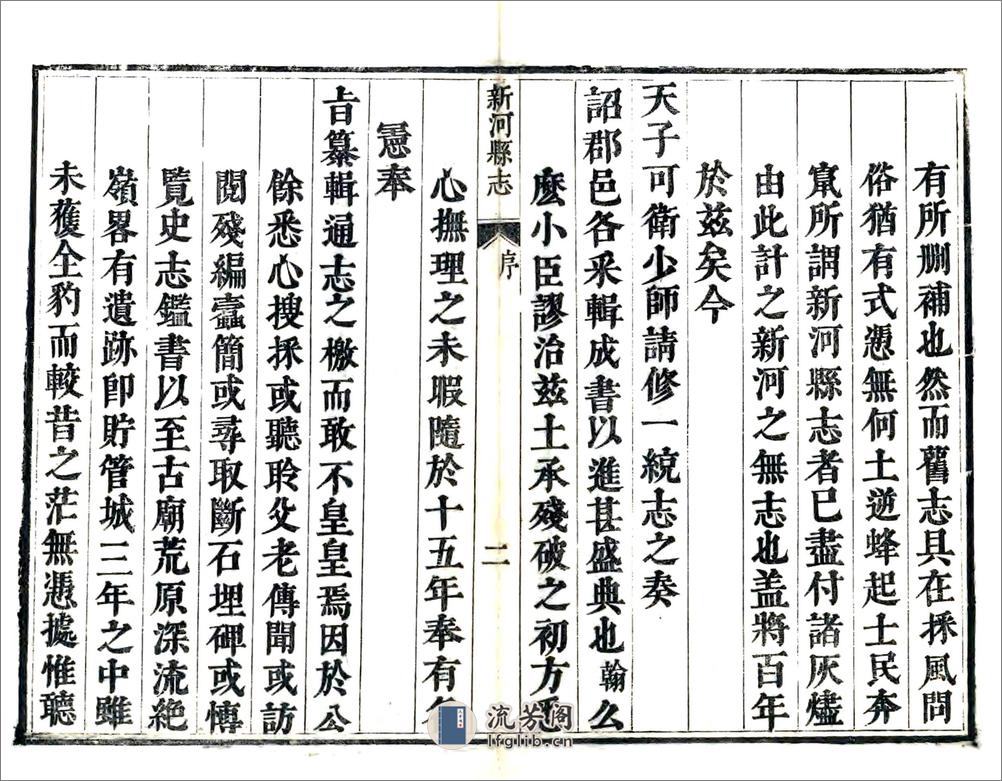 有所刪補也然而舊志具在採風問
俗猶有式憑無何土逆蜂起士民奔
竄所謂新河縣志者已盡付諸灰燼
由此計之新河之無志也盖將百年
於茲矣今
天子可衛少師請修一統志之奏
詔郡邑各采輯成書以進甚盛典也翰么
麽小臣謬治茲土承殘破之初方
心撫理之未暇隨於十五年奉有
新河縣志
序
二
憲奉
旨纂輯通志之檄而敢不皇皇焉因於公
餘悉心搜採或聽聆父老傳聞或訪
閱殘編蠹簡或尋取斷石埋碑或愽
覽史志鑑書以至古廟荒原深流絶
嶺畧有遺跡卽貯管城三年之中雖
未獲全豹而較昔之茫無憑據惟聽
流芳阁
lfglib.cn